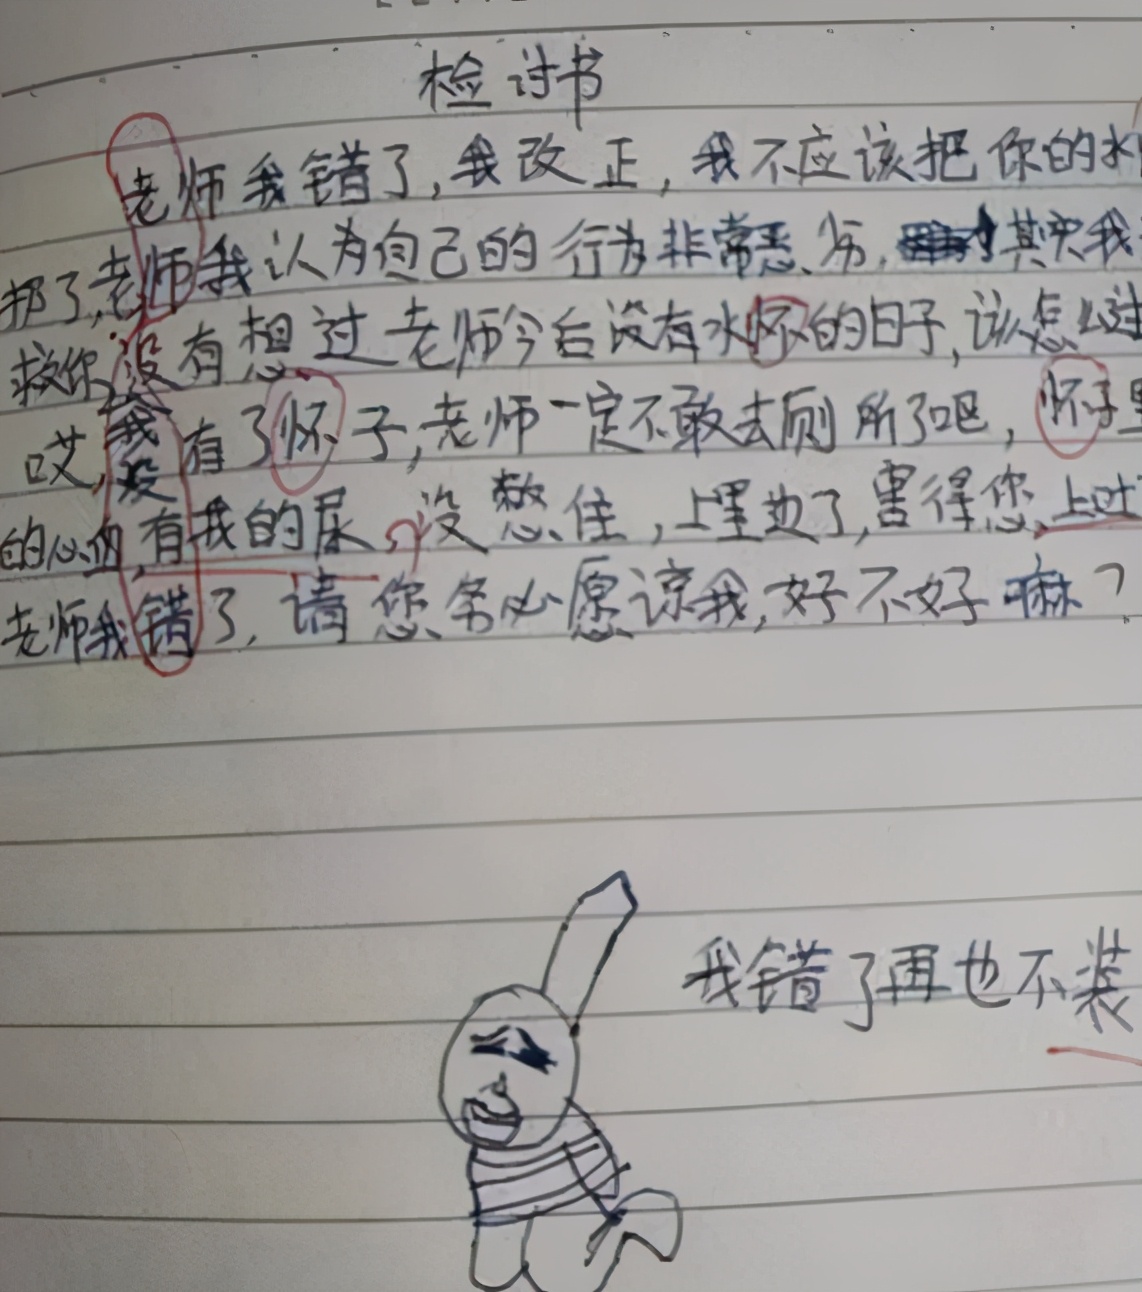 检讨书
老师我错了,我改正,我不应该把你的水
那了,老师我认为自己的行为非常恶劣,其实我
救你,没有想过老师今后没有水怀的日子,该怎么过
哎,我没有了怀子,老师一定不敢去厕所了吧,怀子里
的心血,有我的尿,没憋住,上里边了,害得您上过
老师我错了,请您务必愿谅我,好不好嘛?
我错了再也不装